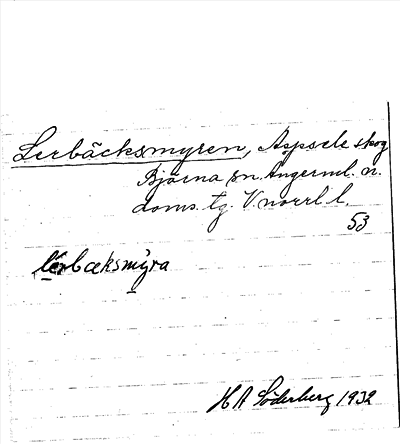 Lerbäcksmyren, Aspsele skog
Björna sn. Ångerml. n.
doms. tg. V.norrl. l.
53
lerbæksmyra
H A Söderberg 1932